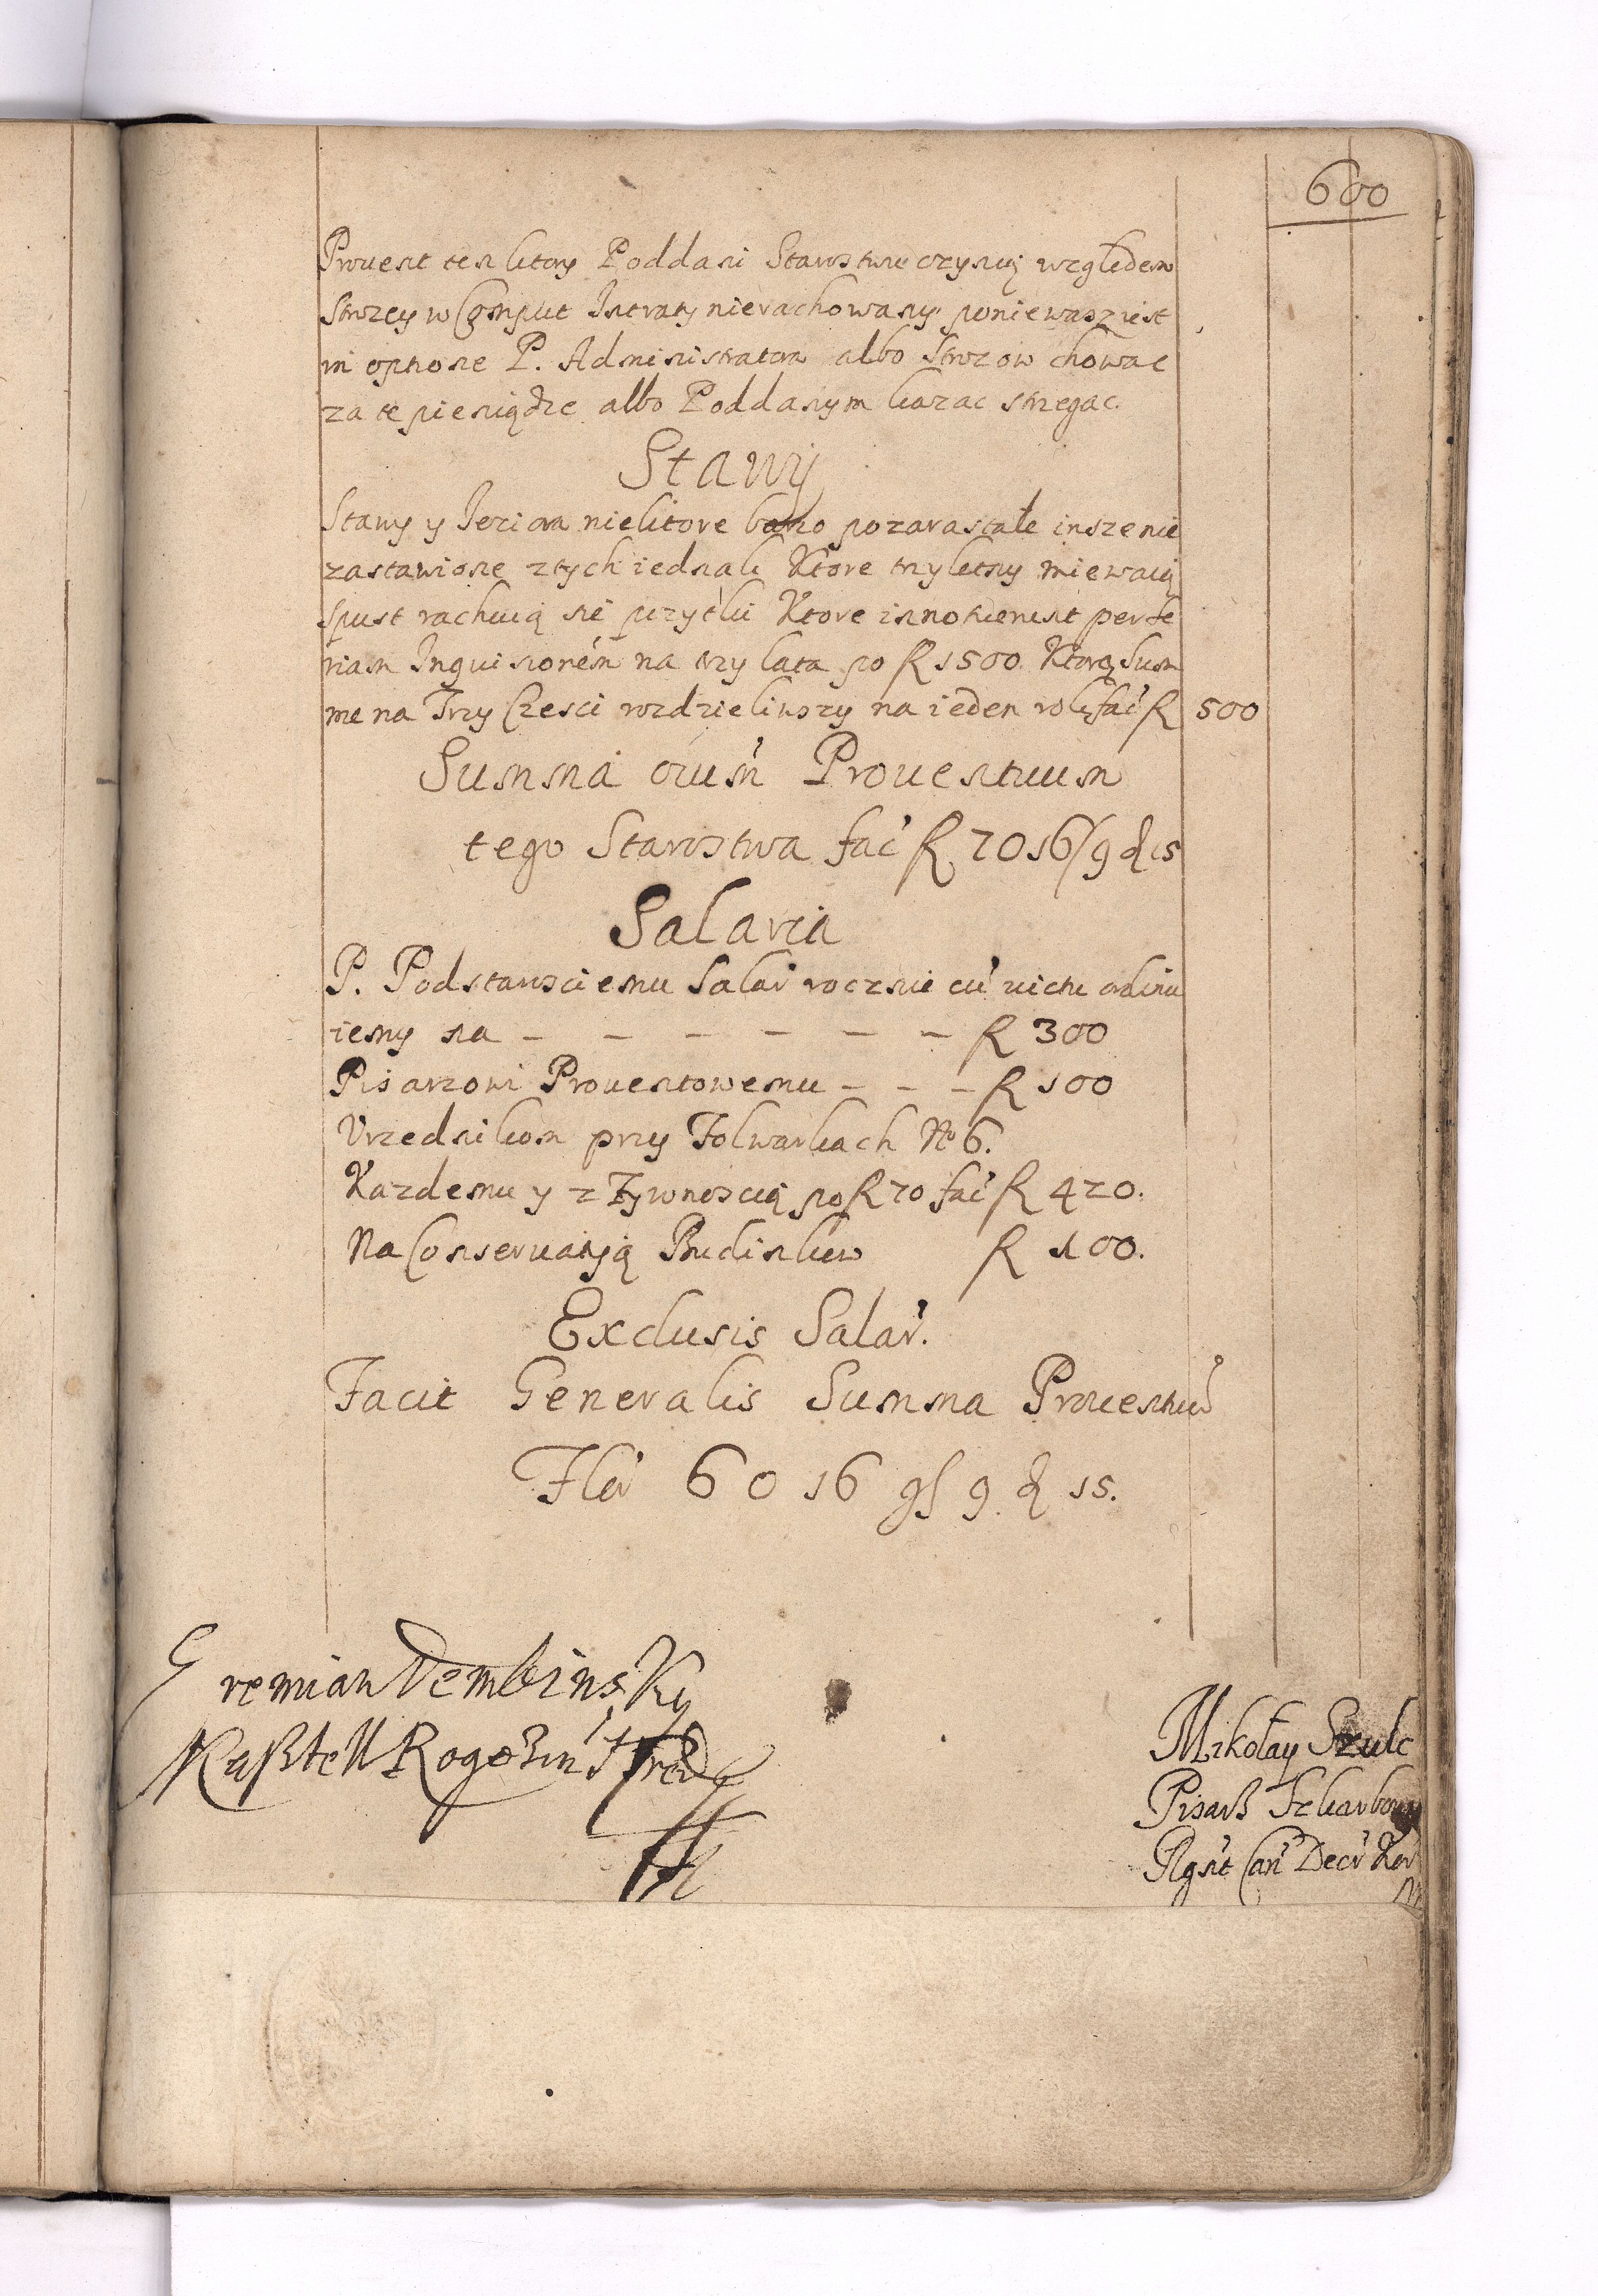 600
Prouent ten ktory Poddani Starostwu czynią względem
Strozey w Comput Intraty nierachowany poniewasz iest
in optione P. Administratora albo Strozow chowac
za te pieniądze albo Poddanym kazac strzegac.
Stawy
Stawy y Ieziora niektore barzo pozarastałe insze nie
zastawione z tych iednak Ktore trzyletny miewaią
spust rachuią się pozytki Ktore innotuerunt per se
riam Inquisitioném na trzy lata po R 1500. Ktorą Sum
me na Trzy Częsci rozdzieliwszy na ieden rok fac̃ R 500
Summa oium̃ Prouentuum
tego Starostwa fac̃ R 7016/9 ₰ 15
Salaria
P. Podstarosciemu Salar̃ rocznie cũ victu ordinu
iemy na - - - - - - R 300
Pisarzowi Prouentowemu - - - R 100
Vrzednikom przy Folwarkach No 6.
Kazdemu y z Zywnoscią po R 70 fac̃ R 420.
Na Conseruatyią Budinkow R 100.
Exclusis Salar̃.
Facit Generalis Summa Prouentuũ
Flor̃ 6016 gl 9. ₰ 15.
Geremian Dembinsky
Kasztell Rogozin
Mikołay Szulc
Pisarz Szkarbowy